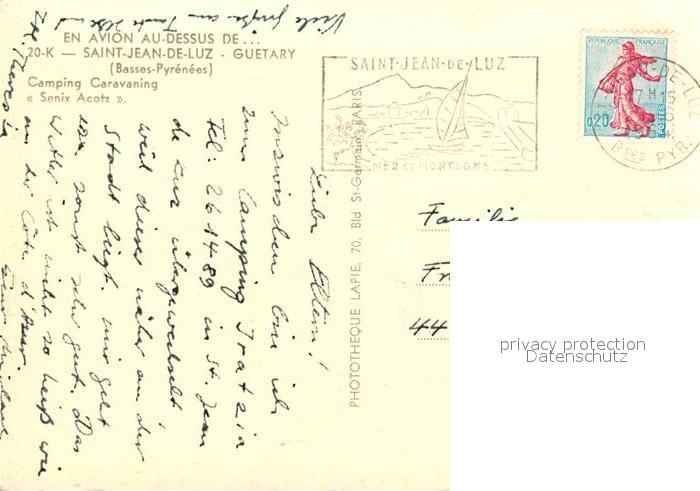 EN AVION AU-DESSUS DE...
20-K — SAINT-JEAN-DE-LUZ - GUETARY
(Basses-Pyrénées)
Camping Caravaning
« Senix Acotz ».
Liebe Eltern!
Inzwischen bin ich
zum Camping Tratzia
Tel: 261489 in St. Jean
de Luz übergewechselt
weil dieses näher an der
Stadt liegt. mir geht
es sonst sehr gut. Das
Wetter ist nicht so heiß wie
an der Côte d'Azur.
Viele Grüße an Tante Ilse und
Theresia
PHOTOTHEQUE LAPIE, 70, Bld St-Germain, PARIS
SAINT-JEAN-DE-LUZ
MER ET MONTAGNE
REPUBLIQUE FRANÇAISE
0,20
POSTES
Bses PYR.
Familie
Fr
44
privacy protection
Datenschutz